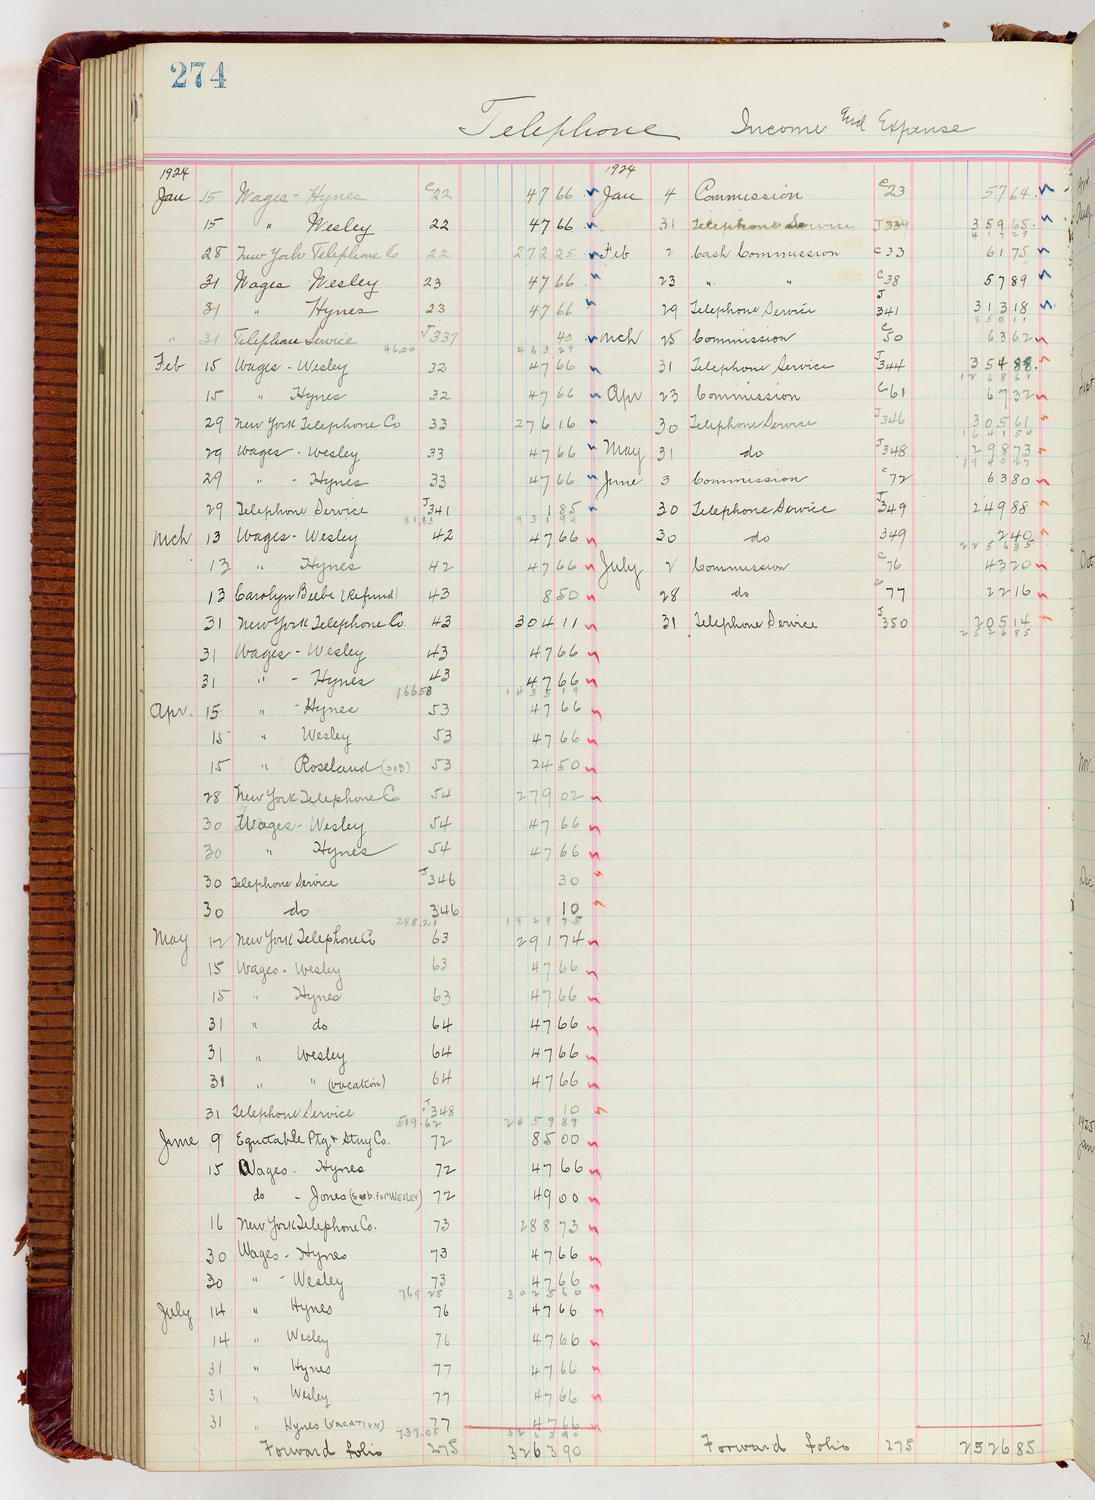 274
Telephone Income and Expense
1924
Jan 15 Wages - Hynes C22 47 66
15 " Wesley 22 47 66
28 New York Telephone Co 22 272 25
31 Wages Wesley 23 47 66
31 " Hynes 23 47 66
" 31 Telephone Service J337 40
46.00 463 29
Feb 15 Wages - Wesley 32 47 66
15 " Hynes 32 47 66
29 New York Telephone Co 33 276 16
29 Wages - Wesley 33 47 66
29 " - Hynes 33 47 66
29 Telephone Service J341 1 85
81.83 931 94
Mch 13 Wages - Wesley 42 47 66
13 " Hynes 42 47 66
13 Carolyn Beebe (Refund) 43 8 50
31 New York Telephone Co. 43 304 11
31 Wages - Wesley 43 47 66
31 " - Hynes 43 47 66
166 58 1435 19
Apr. 15 " - Hynes 53 47 66
15 " Wesley 53 47 66
15 " Roseland (SUB) 53 24 50
28 New York Telephone Co 54 279 02
30 Wages - Wesley 54 47 66
30 " Hynes 54 47 66
30 Telephone Service J346 30
30 do 346 10
288.21 1929 75
May 12 New York Telephone Co 63 291 74
15 Wages - Wesley 63 47 66
15 " Hynes 63 47 66
31 " do 64 47 66
31 " Wesley 64 47 66
31 " " (Vacation) 64 47 66
31 Telephone Service J348 10
519.62 2459 89
June 9 Equitable Ptg & Stny Co. 72 85 00
15 Wages - Hynes 72 47 66
do - Jones (Sub. For WESLEY) 72 49 00
16 New York Telephone Co. 73 288 73
30 Wages - Hynes 73 47 66
30 " - Wesley 73 47 66
769.25 3025 60
July 14 " Hynes 76 47 66
14 " Wesley 76 47 66
31 " Hynes 77 47 66
31 " Wesley 77 47 66
31 " Hynes (VACATION) 77 47 66
737.05 3263 90
Forward folio 275 3263 90
1924
Jan 4 Commission C23 57 64
31 Telephone Service J339 359 65
417 29
Feb 2 Cash Commission C33 61 75
23 " " C38 57 89
29 Telephone Service J341 313 18
850 11
Mch 25 Commission C50 63 62
31 Telephone Service J344 354 88
1268 61
Apr 23 Commission C61 67 32
30 Telephone Service J346 305 61
1641 54
May 31 do J348 298 73
1940 27
June 3 Commission C72 63 80
30 Telephone Service J349 249 88
30 do 349 2 40
2256 35
July 2 Commission C76 43 20
28 do C77 22 16
31 Telephone Service J350 205 14
2526 85
Forward folio 275 2526 85
1925
Jan
Oct
Dec